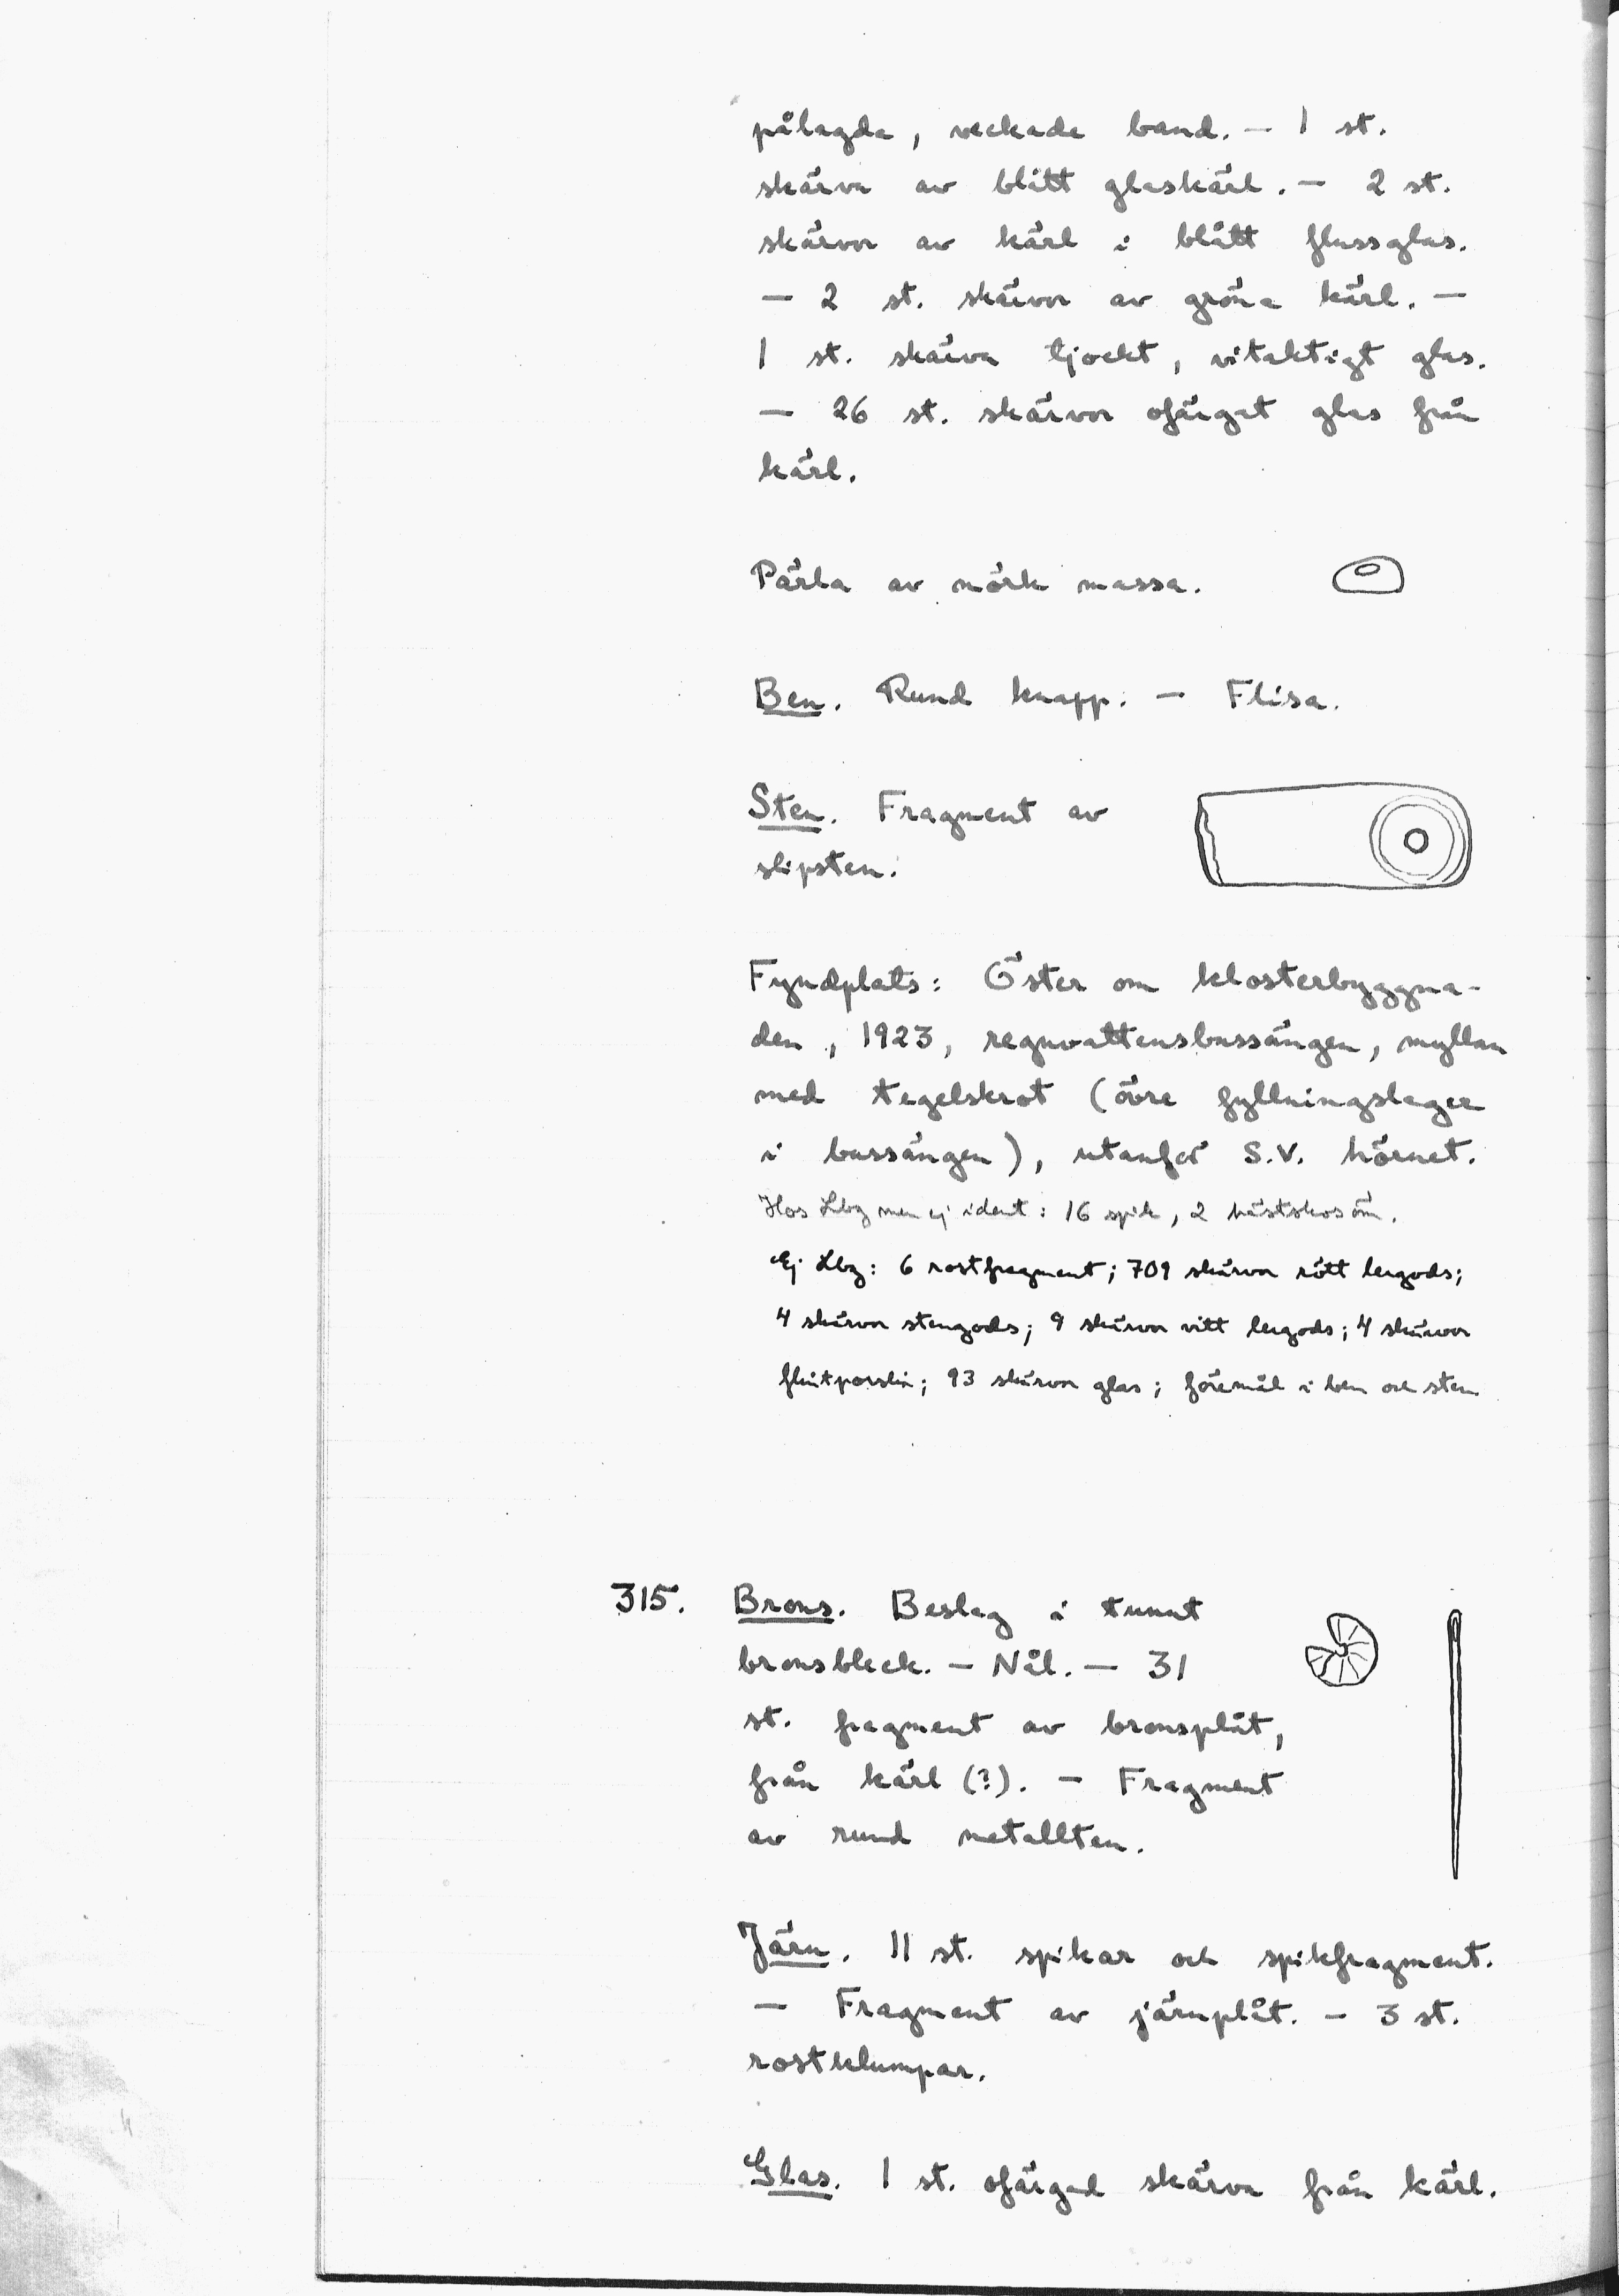 pålagda, veckade band. – 1 st.
skärva av blått glaskärl. – 2 st.
skärvor av kärl i blått flussglas.
– 2 st. skärvor av gröna kärl. –
1 st. skärva tjockt, vitaktigt glas.
– 26 st. skärvor ofärgat glas från
kärl.
Pärla av mörk massa.
Ben. Rund knapp. – Flisa.
Sten. Fragment av
slipsten.
Fyndplats: Öster om klosterbyggna-
den, 1923, regnvattensbassängen, myllan
med tegelskrot (övre fyllningslager
i bassängen), utanför S.V. hörnet.
Hos Lbg men ej ident: 16 spik, 2 hästskosöm.
Ej Lbg: 6 rostfragment; 709 skärvor rött lergods;
4 skärvor stengods; 9 skärvor vitt lergods; 4 skärvor
flintporslin; 93 skärvor glas; föremål i ben och sten
315. Brons. Beslag i tunnt
bronsbleck. – Nål. – 31
st. fragment av bronsplåt,
från kärl (?). – Fragment
av rund metallten.
Järn. 11 st. spikar och spikfragment.
– Fragment av järnplåt. – 3 st.
rostklumpar.
Glas. 1 st. ofärgad skärva från kärl.